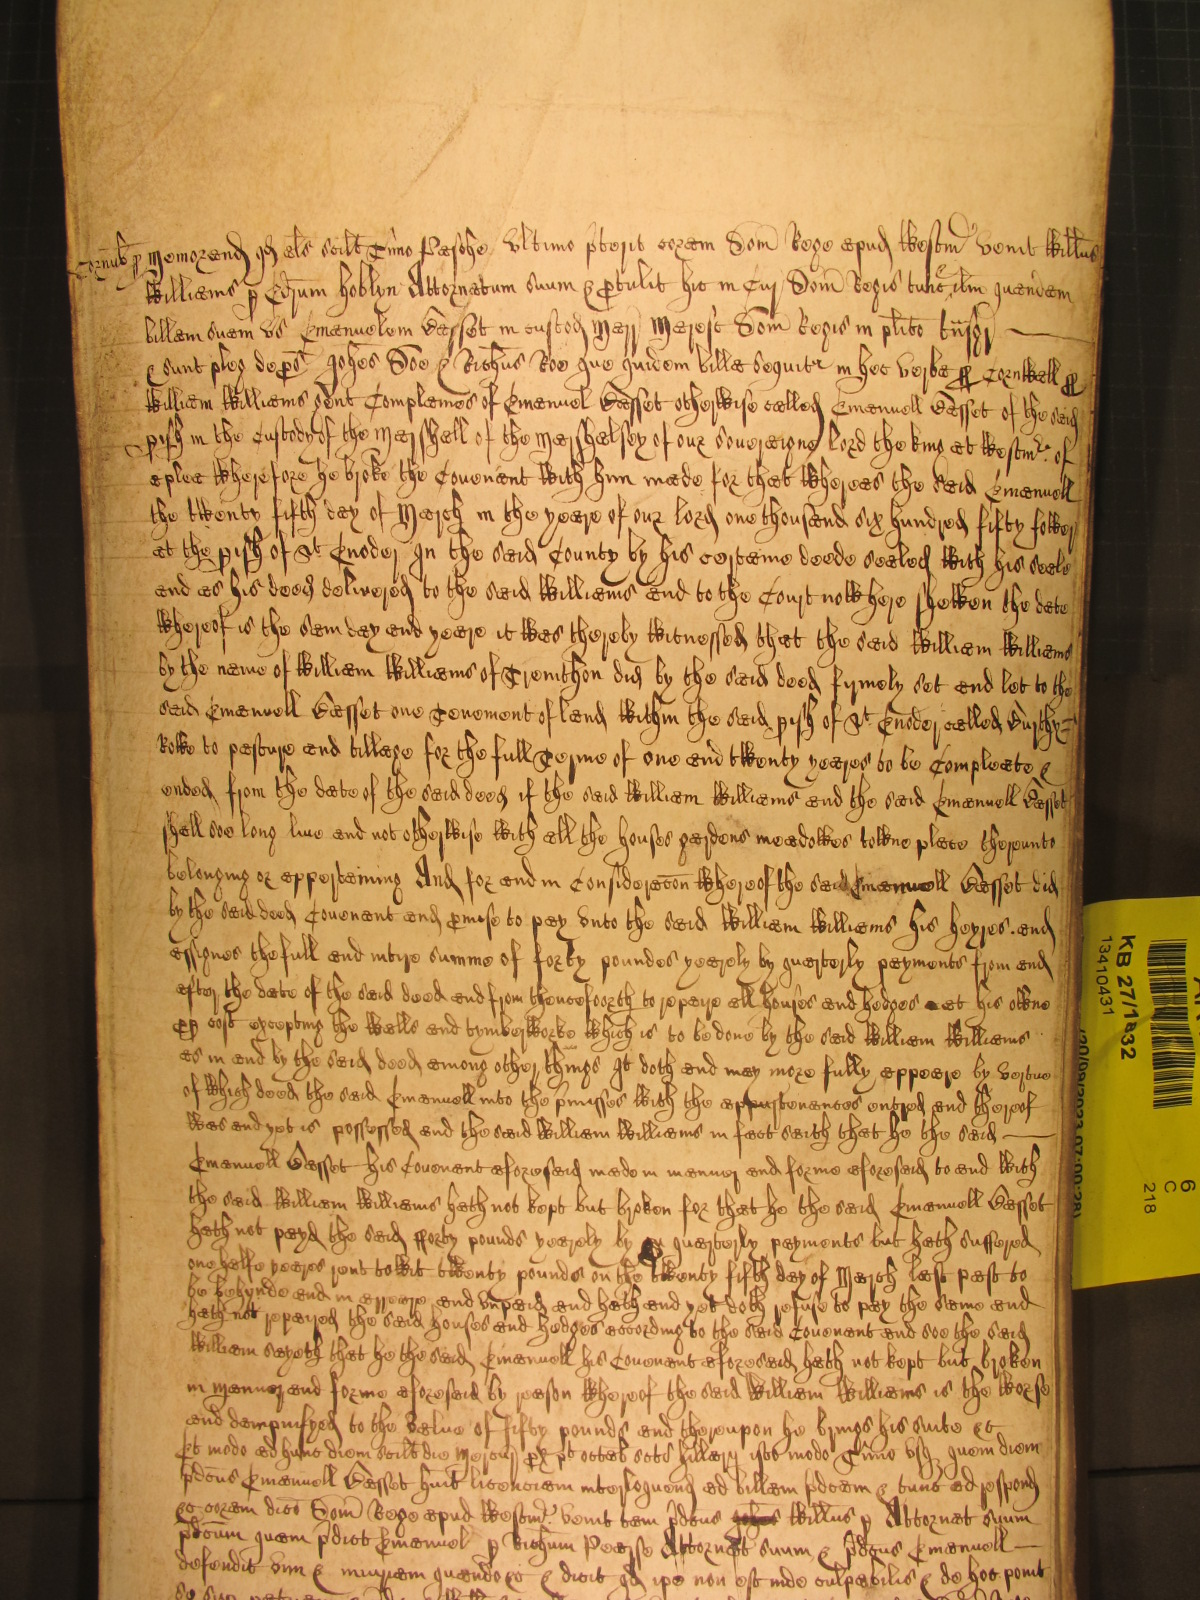 Cornub ss Memorand qd als scilt Tmio Pasche Ultimo pterit coram Dom Rege apud Westm venit Willus
Williams p Edrum Hoblyn Attornatum suum & ptulit hic in Cur Dom Regis tunc ibm quandam
billam suam vs Emanuelem Basset in custod Marr Maresc Dom Regis in plito
& sunt pleg de pos Johes Doe & Richus Roe que quidem billa sequitr in hec verba ss Cornwall ss
William Williams gent Complaines of Emanuel Basset otherwise called Emanuell Basset of the said
pish in the Custody of the Marshall of the Marshalsey of our Soueraigne Lord the king at Westmr. of
a plea wherefore he broke the Couenant with him made for that whereas the said Emanuell
the twenty fifth day of March in the yeare of our Lord one thousand six hundred fifty fower
at the pish of St Enoder In the said County by his certaine deede sealed with his seale
and as his deed deliuered to the said Williams and to the Court now here shewen the date
whereof is the sam day and yeare it was thereby witnessed that the said William Williams
by the name of William Williams of Trenithon did by the said deed firmely set and let to the
said Emanuell Basset one Tenement of land within the said pish of St Enoder called
to pasture and tillage for the full Terme of one and twenty yeares to be Compleate &
ended from the date of the said deed if the said William Williams and the said Emanuell Basset
shall soe long liue and not otherwise with all the houses gardens meadowes towne place thereunto
belonging or appertaining And for and in Consideracon whereof the said Emanuell Basset did
by the said deed Couenant and pmise to pay vnto the said William Williams his heyres and
assignes the full and intire summe of forty poundes yearely by quarterly payments from and
after the date of the said deed and from thenceforth to repaire all houses and hedges at his owne
pp cost excepting the walls and tymberworke which is to be done by the said William Williams
as in and by the said deed among other things It doth and may more fully appeare by vertue
of which deed the said Emanuell into the pmisses with the appurtenances entred and thereof
was and yet is possessed and the said William Williams in fact saith that he the said
Emanuell Basset his Couenant aforesaid made in manner and forme aforesaid to and with
the said William Williams hath not kept but broken for that he the said Emanuell Basset
hath not payd the said fforty pounds yearely by quarterly payments but hath suffered
one halfe yeares rent to wit twenty pounds on the twenty fifth day of March last past to
be behynde and in arreare and vnpaid and hath and yet doth refuse to pay the same and
hath not repaired the said houses and hedges according to the said Couenant and soe the said
William sayeth that he the said Emanuell his Couenant aforesaid hath not kept but broken
in manner and forme aforesaid by reason whereof the said William Williams is the worse
and dampnifyed to the value of fifty pounds and thereupon he brings his suite &c
Et modo ad hunc diem scilt die Mercur px pt octab scti Hillary isto modo Tmio vsq quem diem
pdcus Emanuell Basset huit licenciam interloquend ad billam pdcam & tunc ad respond
&c coram dico Dom Rege apud Westm venit tam pdcus Willus p Attornat suum
pdcum quam pdict Emanuel p Richum Pearse Attornat suum & pdcus Emanuell
defendit vim & iniuriam quando &c & dicit qd ipe non est inde culpabilis & de hoc ponit
KB 27/1832
13410431
6
C
218